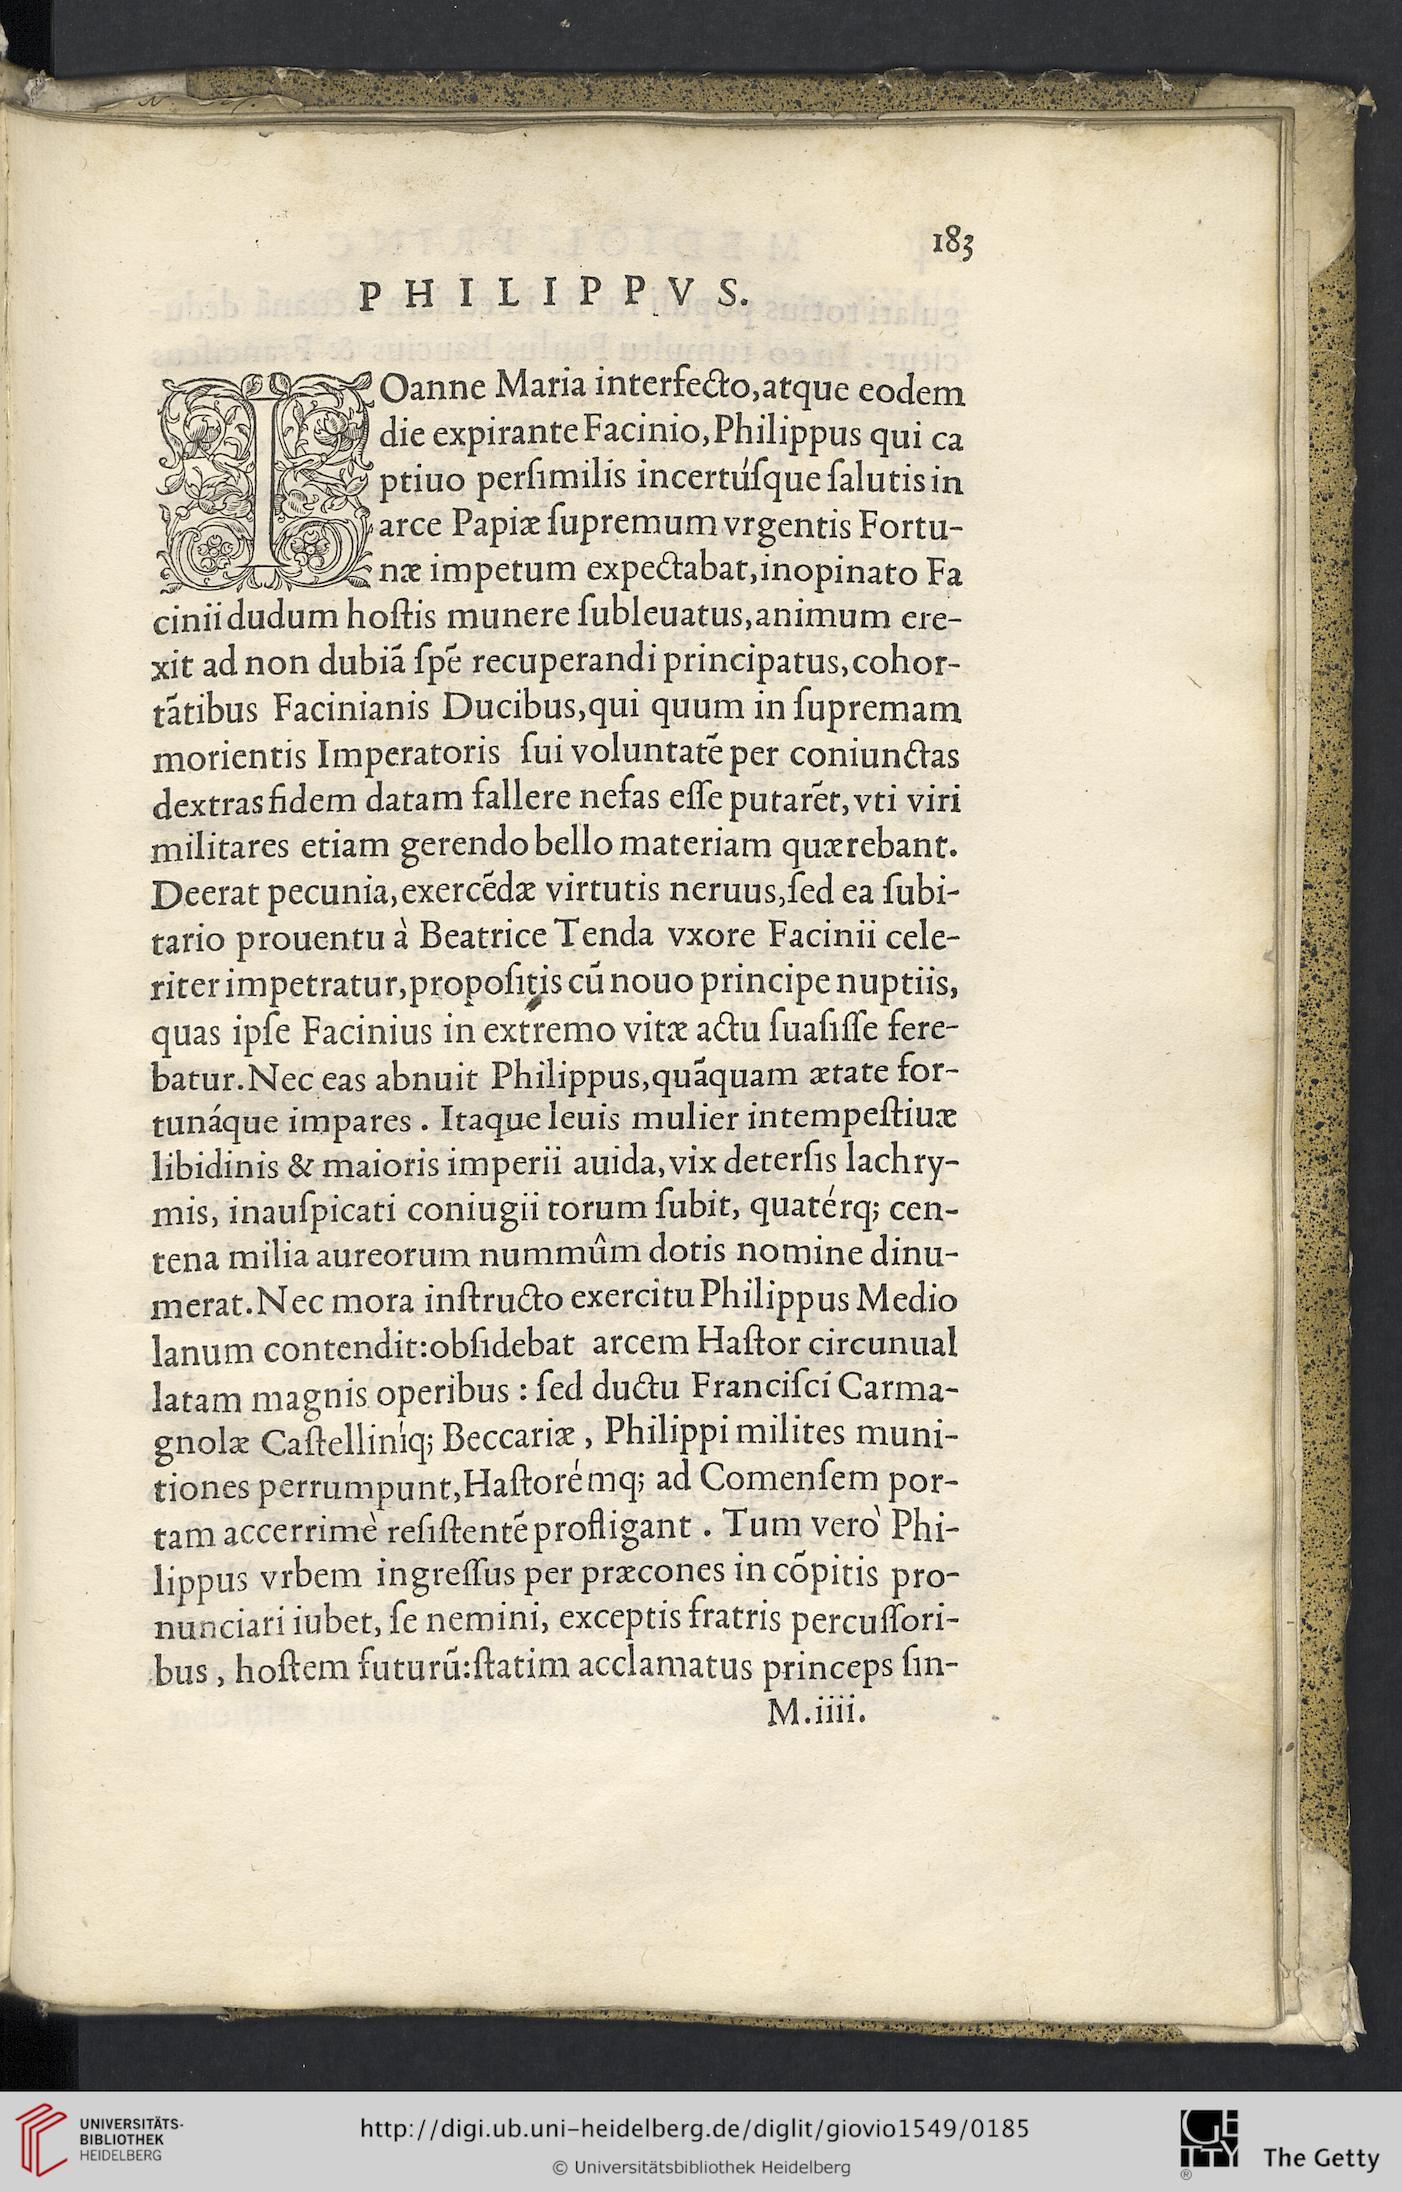 183
PHILIPPVS.
IOanne Maria interfecto,atque eodem
die expirante Facinio,Philippus qui ca
ptiuo perſimilis incertúſque ſalutis in
arce Papiæ ſupremum vrgentis Fortu-
næ impetum expectabat,inopinato Fa
cinii dudum hoſtis munere ſubleuatus,animum ere-
xit ad non dubiã ſpẽ recuperandi principatus,cohor-
tãtibus Facinianis Ducibus,qui quum in ſupremam
morientis Imperatoris ſui voluntatẽ per coniunctas
dextras fidem datam fallere nefas eſſe putarẽt,vti viri
militares etiam gerendo bello materiam quærebant.
Deerat pecunia,exercẽdæ virtutis neruus,ſed ea ſubi-
tario prouentu à Beatrice Tenda vxore Facinii cele-
riter impetratur,propoſitis cũ nouo principe nuptiis,
quas ipſe Facinius in extremo vitæ actu ſuaſiſſe fere-
batur.Nec eas abnuit Philippus,quãquam ætate for-
tunáque impares . Itaque leuis mulier intempeſtiuæ
libidinis & maioris imperii auida,vix deterſis lachry-
mis, inauſpicati coniugii torum ſubit, quatérq; cen-
tena milia aureorum nummûm dotis nomine dinu-
merat.Nec mora inſtructo exercitu Philippus Medio
lanum contendit:obſidebat arcem Haſtor circunual
latam magnis operibus : ſed ductu Franciſci Carma-
gnolæ Caſtelliníq; Beccariæ , Philippi milites muni-
tiones perrumpunt,Haſtorémq; ad Comenſem por-
tam accerrimè reſiſtentẽ profligant . Tum verò Phi-
lippus vrbem ingreſſus per præcones in cõpitis pro-
nunciari iubet, ſe nemini, exceptis fratris percuſſori-
bus , hoſtem futurũ:ſtatim acclamatus princeps ſin-
M.iiii.
UNIVERSITÄTS-
BIBLIOTHEK
HEIDELBERG
http://digi.ub.uni-heidelberg.de/diglit/giovio1549/0185
© Universitätsbibliothek Heidelberg
Getty
®
The Getty